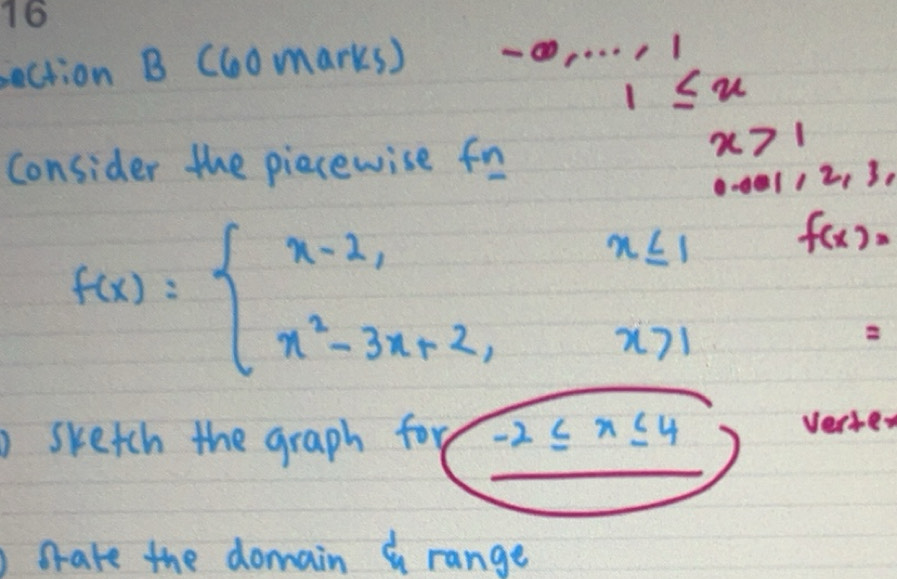 16
Section B (60 marks)
-∞, ..., 1
1 ≤ x
x > 1
Consider the piecewise fn
0.001, 2, 3,
f(x) = { x - 2, x ≤ 1
f(x) =
x² - 3x + 2, x > 1
=
) Sketch the graph for -2 ≤ x ≤ 4
) State the domain & range